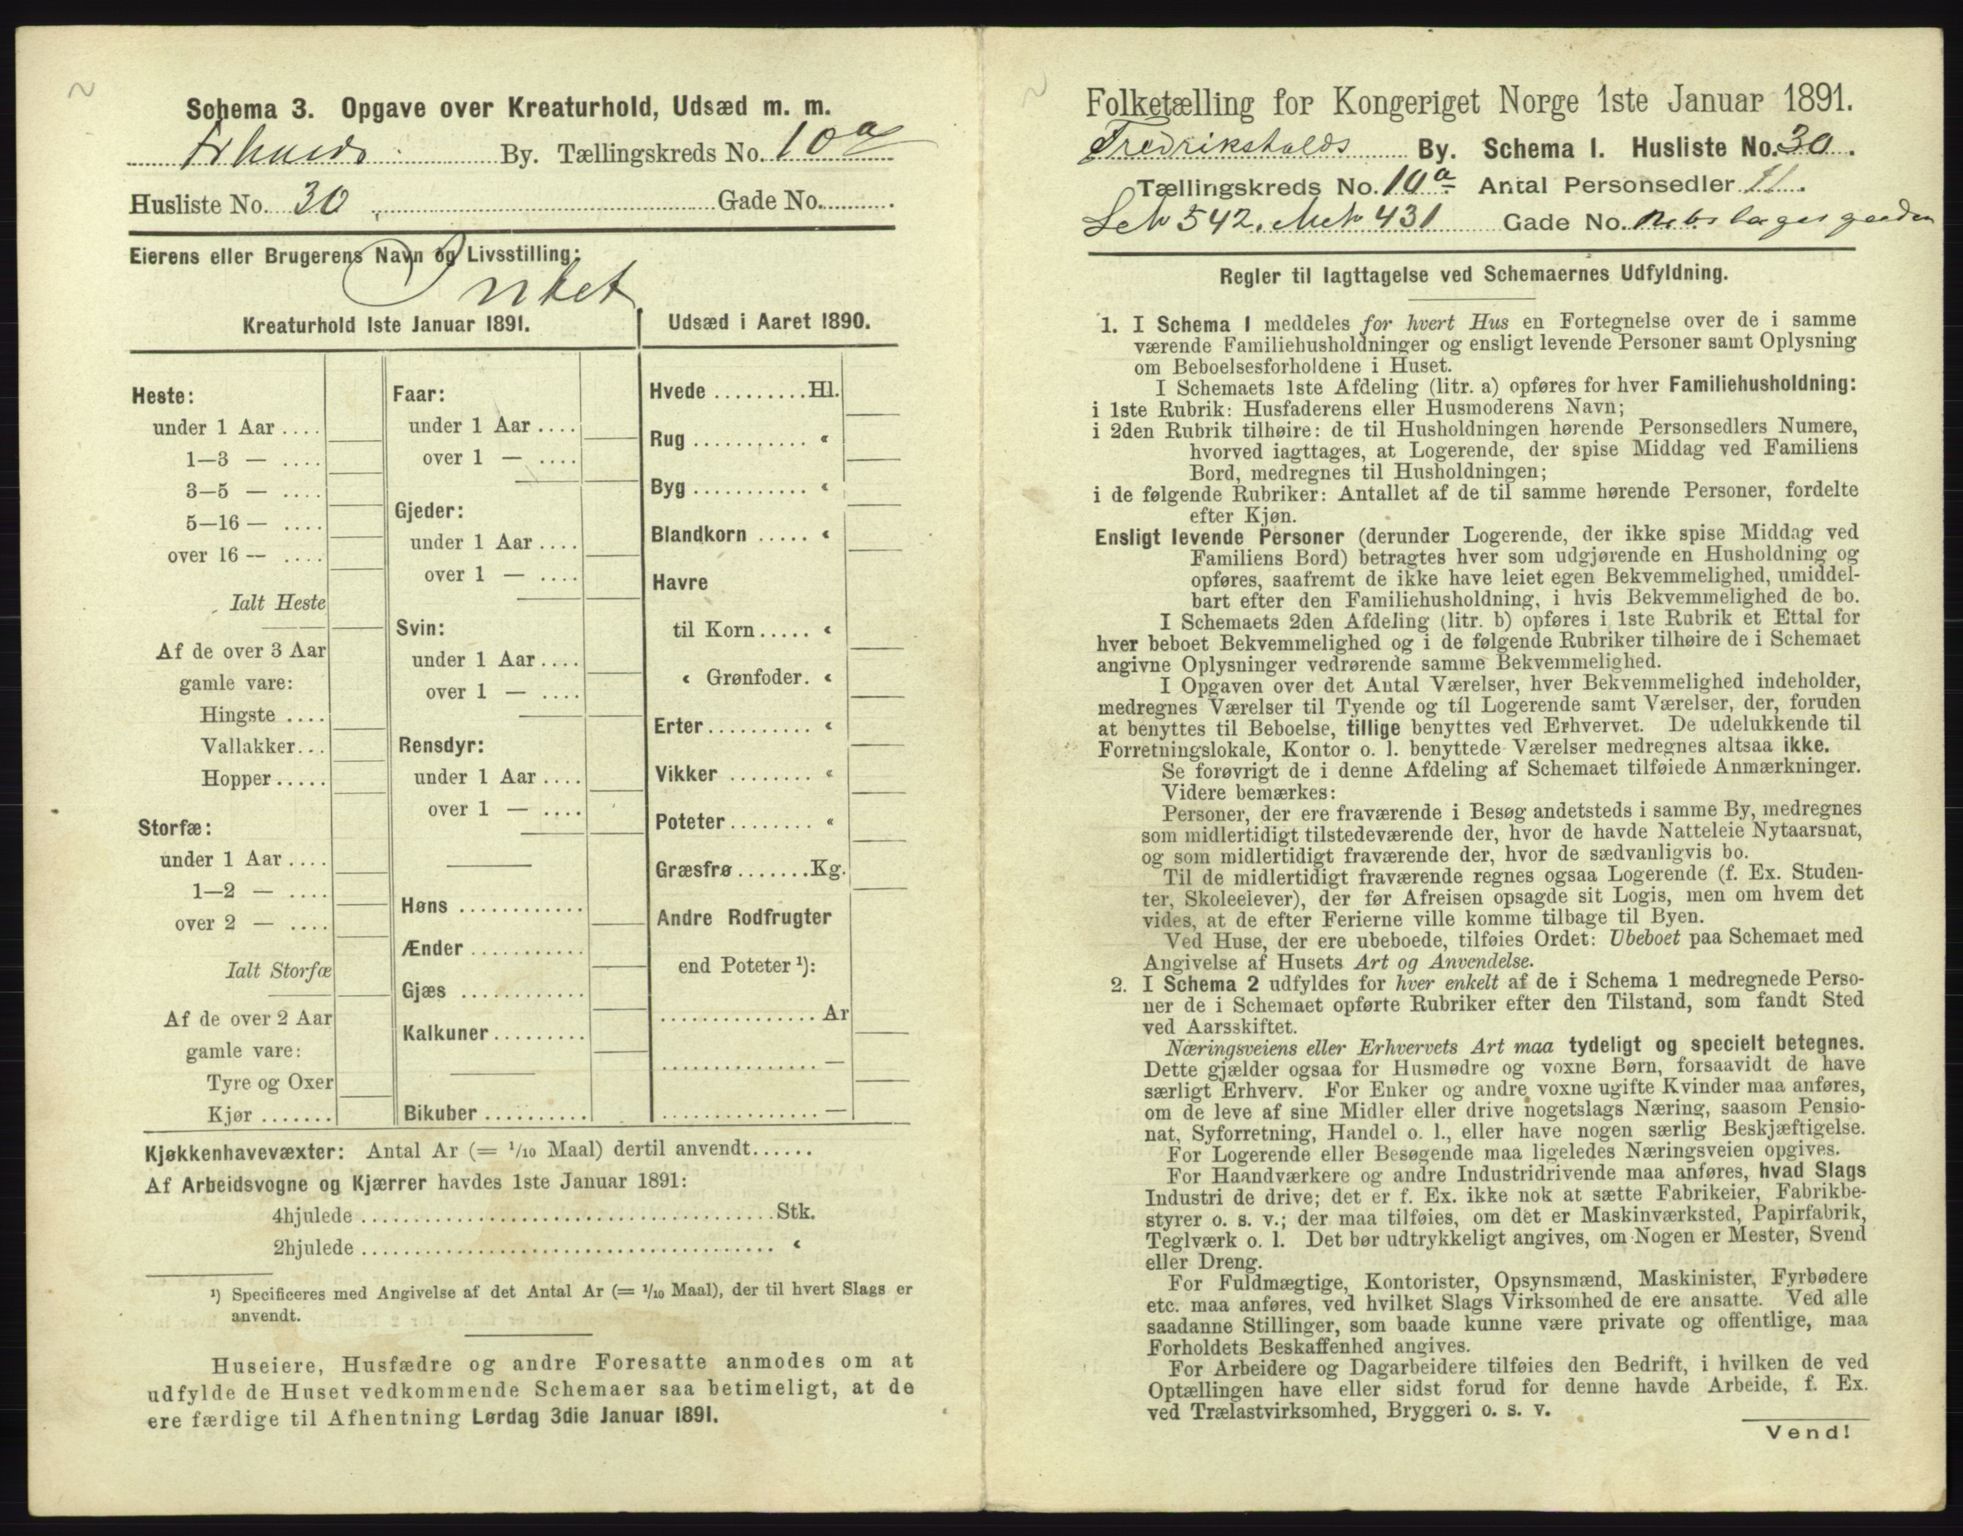 Schema 3. Opgave over Kreaturhold, Udsæd m. m.
Frhalds By. Tællingskreds No. 10a
Husliste No. 30 Gade No.
Eierens eller Brugerens Navn og Livsstilling:
Intet
Kreaturhold 1ste Januar 1891.
Heste:
under 1 Aar ....
1—3 — ....
3—5 — ....
5—16 — ....
over 16 — ....
Ialt Heste
Af de over 3 Aar
gamle vare:
Hingste ....
Vallakker...
Hopper.....
Storfæ:
under 1 Aar ....
1—2 — ....
over 2 — ....
Ialt Storfæ
Af de over 2 Aar
gamle vare:
Tyre og Oxer
Kjør .......
Faar:
under 1 Aar ....
over 1 — ....
Gjeder:
under 1 Aar ....
over 1 — ....
Svin:
under 1 Aar ....
over 1 — ....
Rensdyr:
under 1 Aar ....
over 1 — ....
Høns ............
Ænder ...........
Gjæs ............
Kalkuner.........
Bikuber ..........
Udsæd i Aaret 1890.
Hvede .........Hl.
Rug ........... «
Byg ........... «
Blandkorn ..... «
Havre
til Korn..... «
« Grønfoder. «
Erter.......... «
Vikker ........ «
Poteter........ «
Græsfrø.......Kg.
Andre Rodfrugter
end Poteter ¹):
............... Ar
............... —
............... —
Kjøkkenhavevæxter: Antal Ar (= 1/10 Maal) dertil anvendt......
Af Arbeidsvogne og Kjærrer havdes 1ste Januar 1891:
4hjulede ....................................... Stk.
2hjulede ....................................... «
¹) Specificeres med Angivelse af det Antal Ar (= 1/10 Maal), der til hvert Slags er
anvendt.
Huseiere, Husfædre og andre Foresatte anmodes om at
udfylde de Huset vedkommende Schemaer saa betimeligt, at de
ere færdige til Afhentning Lørdag 3die Januar 1891.
Folketælling for Kongeriget Norge 1ste Januar 1891.
Fredrikshalds By. Schema 1. Husliste No. 30.
Tællingskreds No. 10a Antal Personsedler 11.
542. 431 Gade No.
Regler til Iagttagelse ved Schemaernes Udfyldning.
1. I Schema 1 meddeles for hvert Hus en Fortegnelse over de i samme
værende Familiehusholdninger og ensligt levende Personer samt Oplysning
om Beboelsesforholdene i Huset.
I Schemaets 1ste Afdeling (litr. a) opføres for hver Familiehusholdning:
i 1ste Rubrik: Husfaderens eller Husmoderens Navn;
i 2den Rubrik tilhøire: de til Husholdningen hørende Personsedlers Numere,
hvorved iagttages, at Logerende, der spise Middag ved Familiens
Bord, medregnes til Husholdningen;
i de følgende Rubriker: Antallet af de til samme hørende Personer, fordelte
efter Kjøn.
Ensligt levende Personer (derunder Logerende, der ikke spise Middag ved
Familiens Bord) betragtes hver som udgjørende en Husholdning og
opføres, saafremt de ikke have leiet egen Bekvemmelighed, umiddel-
bart efter den Familiehusholdning, i hvis Bekvemmelighed de bo.
I Schemaets 2den Afdeling (litr. b) opføres i 1ste Rubrik et Ettal for
hver beboet Bekvemmelighed og i de følgende Rubriker tilhøire de i Schemaet
angivne Oplysninger vedrørende samme Bekvemmelighed.
I Opgaven over det Antal Værelser, hver Bekvemmelighed indeholder,
medregnes Værelser til Tyende og til Logerende samt Værelser, der, foruden
at benyttes til Beboelse, tillige benyttes ved Erhvervet. De udelukkende til
Forretningslokale, Kontor o. l. benyttede Værelser medregnes altsaa ikke.
Se forøvrigt de i denne Afdeling af Schemaet tilføiede Anmærkninger.
Videre bemærkes:
Personer, der ere fraværende i Besøg andetsteds i samme By, medregnes
som midlertidigt tilstedeværende der, hvor de havde Natteleie Nytaarsnat,
og som midlertidigt fraværende der, hvor de sædvanligvis bo.
Til de midlertidigt fraværende regnes ogsaa Logerende (f. Ex. Studen-
ter, Skoleelever), der før Afreisen opsagde sit Logis, men om hvem det
vides, at de efter Ferierne ville komme tilbage til Byen.
Ved Huse, der ere ubeboede, tilføies Ordet: Ubeboet paa Schemaet med
Angivelse af Husets Art og Anvendelse.
2. I Schema 2 udfyldes for hver enkelt af de i Schema 1 medregnede Perso-
ner de i Schemaet opførte Rubriker efter den Tilstand, som fandt Sted
ved Aarsskiftet.
Næringsveiens eller Erhvervets Art maa tydeligt og specielt betegnes.
Dette gjælder ogsaa for Husmødre og voxne Børn, forsaavidt de have
særligt Erhverv. For Enker og andre voxne ugifte Kvinder maa anføres,
om de leve af sine Midler eller drive nogetslags Næring, saasom Pensio-
nat, Syforretning, Handel o. l., eller have nogen særlig Beskjæftigelse.
For Logerende eller Besøgende maa ligeledes Næringsveien opgives.
For Haandværkere og andre Industridrivende maa anføres, hvad Slags
Industri de drive; det er f. Ex. ikke nok at sætte Fabrikeier, Fabrikbe-
styrer o. s. v.; der maa tilføies, om det er Maskinværksted, Papirfabrik,
Teglværk o. l. Det bør udtrykkeligt angives, om Nogen er Mester, Svend
eller Dreng.
For Fuldmægtige, Kontorister, Opsynsmænd, Maskinister, Fyrbødere
etc. maa anføres, ved hvilket Slags Virksomhed de ere ansatte. Ved alle
saadanne Stillinger, som baade kunne være private og offentlige, maa
Forholdets Beskaffenhed angives.
For Arbeidere og Dagarbeidere tilføies den Bedrift, i hvilken de ved
Optællingen have eller sidst forud for denne havde Arbeide, f. Ex.
ved Trælastvirksomhed, Bryggeri o. s. v.
Vend!